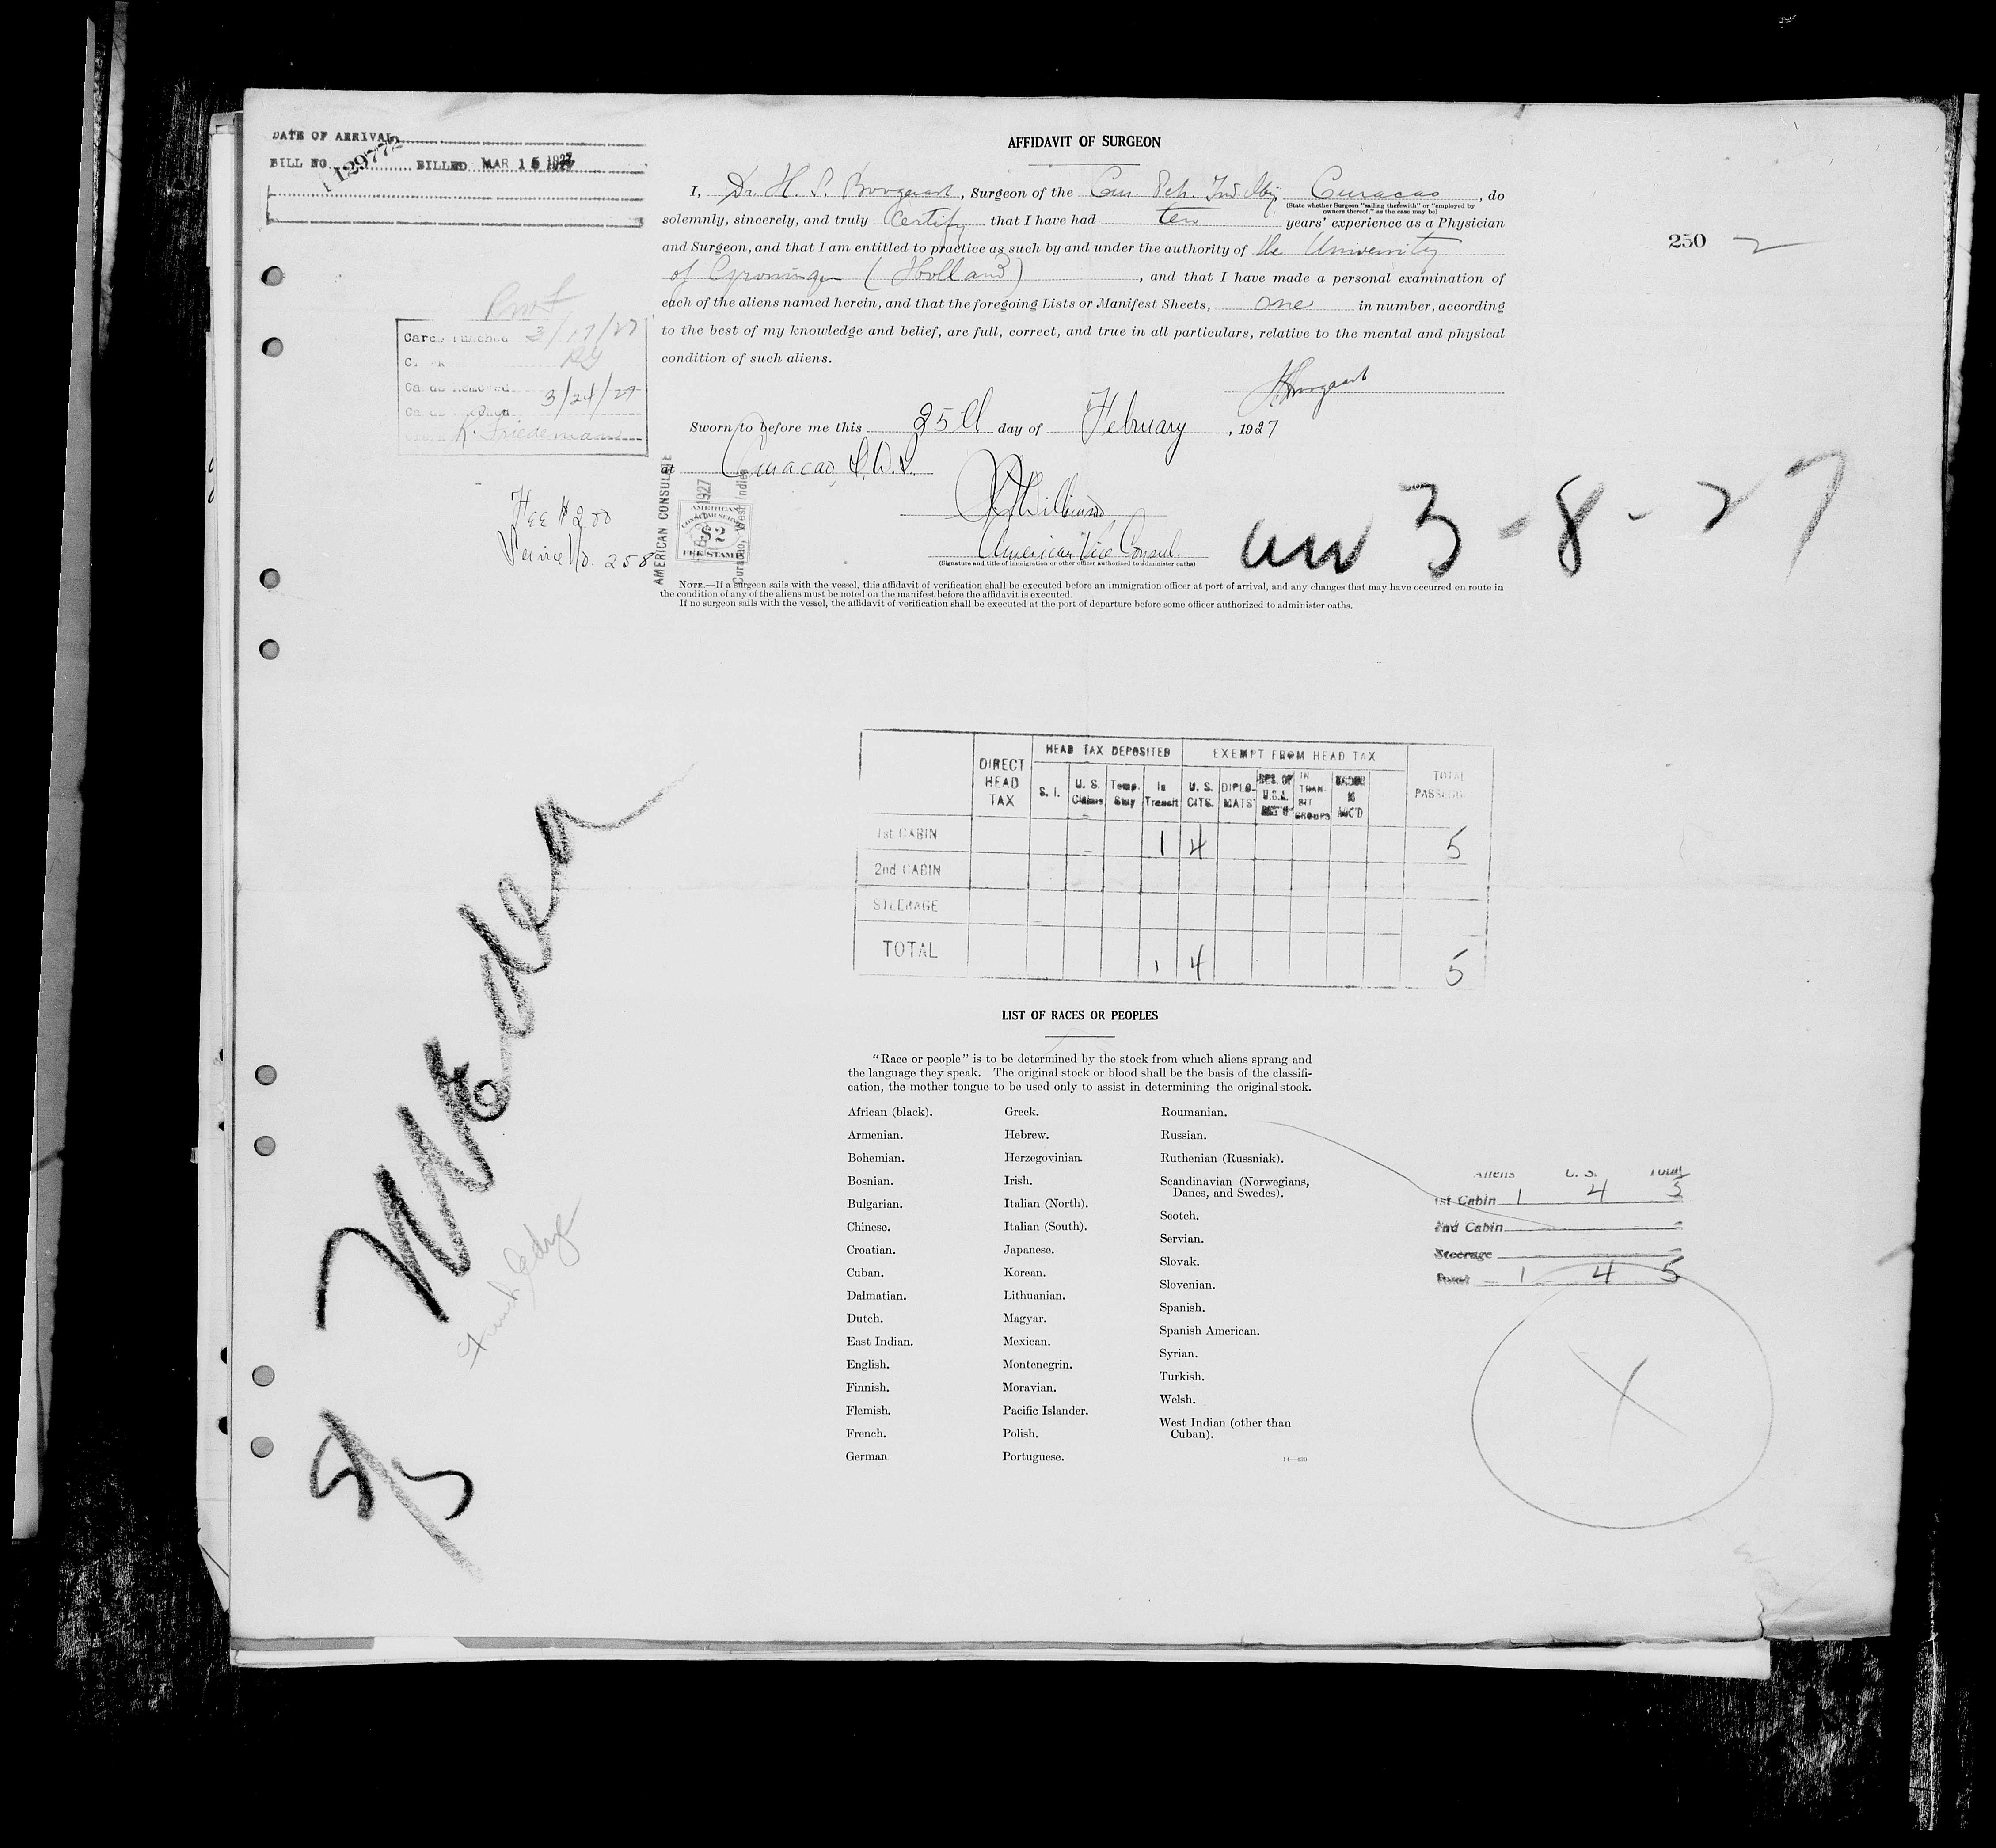 DATE OF ARRIVAL
BILL NO. 129772 BILLED MAR 15 1927
AFFIDAVIT OF SURGEON
I, Dr. H. S. , Surgeon of the Curacao, do
(State whether Surgeon "sailing therewith" or "employed by
owners thereof," as the case may be)
solemnly, sincerely, and truly certify that I have had ten years' experience as a Physician
and Surgeon, and that I am entitled to practice as such by and under the authority of the University
of Groningen (Holland), and that I have made a personal examination of
each of the aliens named herein, and that the foregoing Lists or Manifest Sheets, one in number, according
to the best of my knowledge and belief, are full, correct, and true in all particulars, relative to the mental and physical
condition of such aliens.
250 2
Cards Punched 3/17/27
Cards Removed 3/24/27
K. Friedeman
Sworn to before me this 25th day of February, 1927
at Curacao, D.W.I.
Williams
American Vice Consul.
(Signature and title of immigration or other officer authorized to administer oaths)
Fee $2.00
Service No. 258
AMERICAN CONSULATE
1927
Curacao, West Indies
AMERICAN
CONSULAR SERVICE
$2
FEE STAMP
arr 3-8-27
NOTE.—If a surgeon sails with the vessel, this affidavit of verification shall be executed before an immigration officer at port of arrival, and any changes that may have occurred en route in
the condition of any of the aliens must be noted on the manifest before the affidavit is executed.
If no surgeon sails with the vessel, the affidavit of verification shall be executed at the port of departure before some officer authorized to administer oaths.
DIRECT HEAD TAX HEAD TAX DEPOSITED EXEMPT FROM HEAD TAX TOTAL PASSENG.
S. I. U. S. Claims Temp. Stay In Transit U. S. CITS. DIPLO-MATS RES. OF U.S.A. RET'G IN TRAN-SIT GROUPS UNDER 16 ACC'D
1st CABIN 1 4 5
2nd CABIN
STEERAGE
TOTAL 1 4 5
Medea
5/5
LIST OF RACES OR PEOPLES
"Race or people" is to be determined by the stock from which aliens sprang and
the language they speak. The original stock or blood shall be the basis of the classifi-
cation, the mother tongue to be used only to assist in determining the original stock.
African (black).
Armenian.
Bohemian.
Bosnian.
Bulgarian.
Chinese.
Croatian.
Cuban.
Dalmatian.
Dutch.
East Indian.
English.
Finnish.
Flemish.
French.
German
Greek.
Hebrew.
Herzegovinian.
Irish.
Italian (North).
Italian (South).
Japanese.
Korean.
Lithuanian.
Magyar.
Mexican.
Montenegrin.
Moravian.
Pacific Islander.
Polish.
Portuguese.
Roumanian.
Russian.
Ruthenian (Russniak).
Scandinavian (Norwegians,
Danes, and Swedes).
Scotch.
Servian.
Slovak.
Slovenian.
Spanish.
Spanish American.
Syrian.
Turkish.
Welsh.
West Indian (other than
Cuban).
14—430
Aliens U. S. Total
1st Cabin 1 4 5
2nd Cabin
Steerage
Total 1 4 5
X